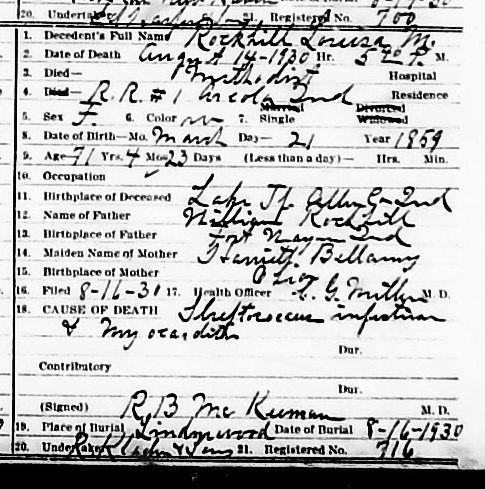 20. Undertaker 21. Registered No. 700
1. Decedent's Full Name Rockhill Louisa M.
2. Date of Death August 14-1930 Hr. 5 P. M.
3. Died— Methodist Hospital
4. Died— R.R. #1 Arcola Ind Residence
Married Divorced
5. Sex F. 6. Color w 7. Single Widowed
8. Date of Birth—Mo. March Day— 21 Year 1859
9. Age 71 Yrs. 4 Mos 23 Days (Less than a day)— Hrs. Min.
10. Occupation
11. Birthplace of Deceased Lake Tp. Allen Co Ind
12. Name of Father William Rockhill
13. Birthplace of Father Fort Wayne Ind
14. Maiden Name of Mother Harriett Bellamy
15. Birthplace of Mother Ohio
16. Filed 8-16-30 17. Health Officer G. Miller M. D.
18. CAUSE OF DEATH Streptococcus infection
& myocarditis
Dur.
Contributory
Dur.
(Signed) R. B Mc Keeman M. D.
19. Place of Burial Lindenwood Date of Burial 8-16-1930
20. Undertaker & Sons 21. Registered No. 716